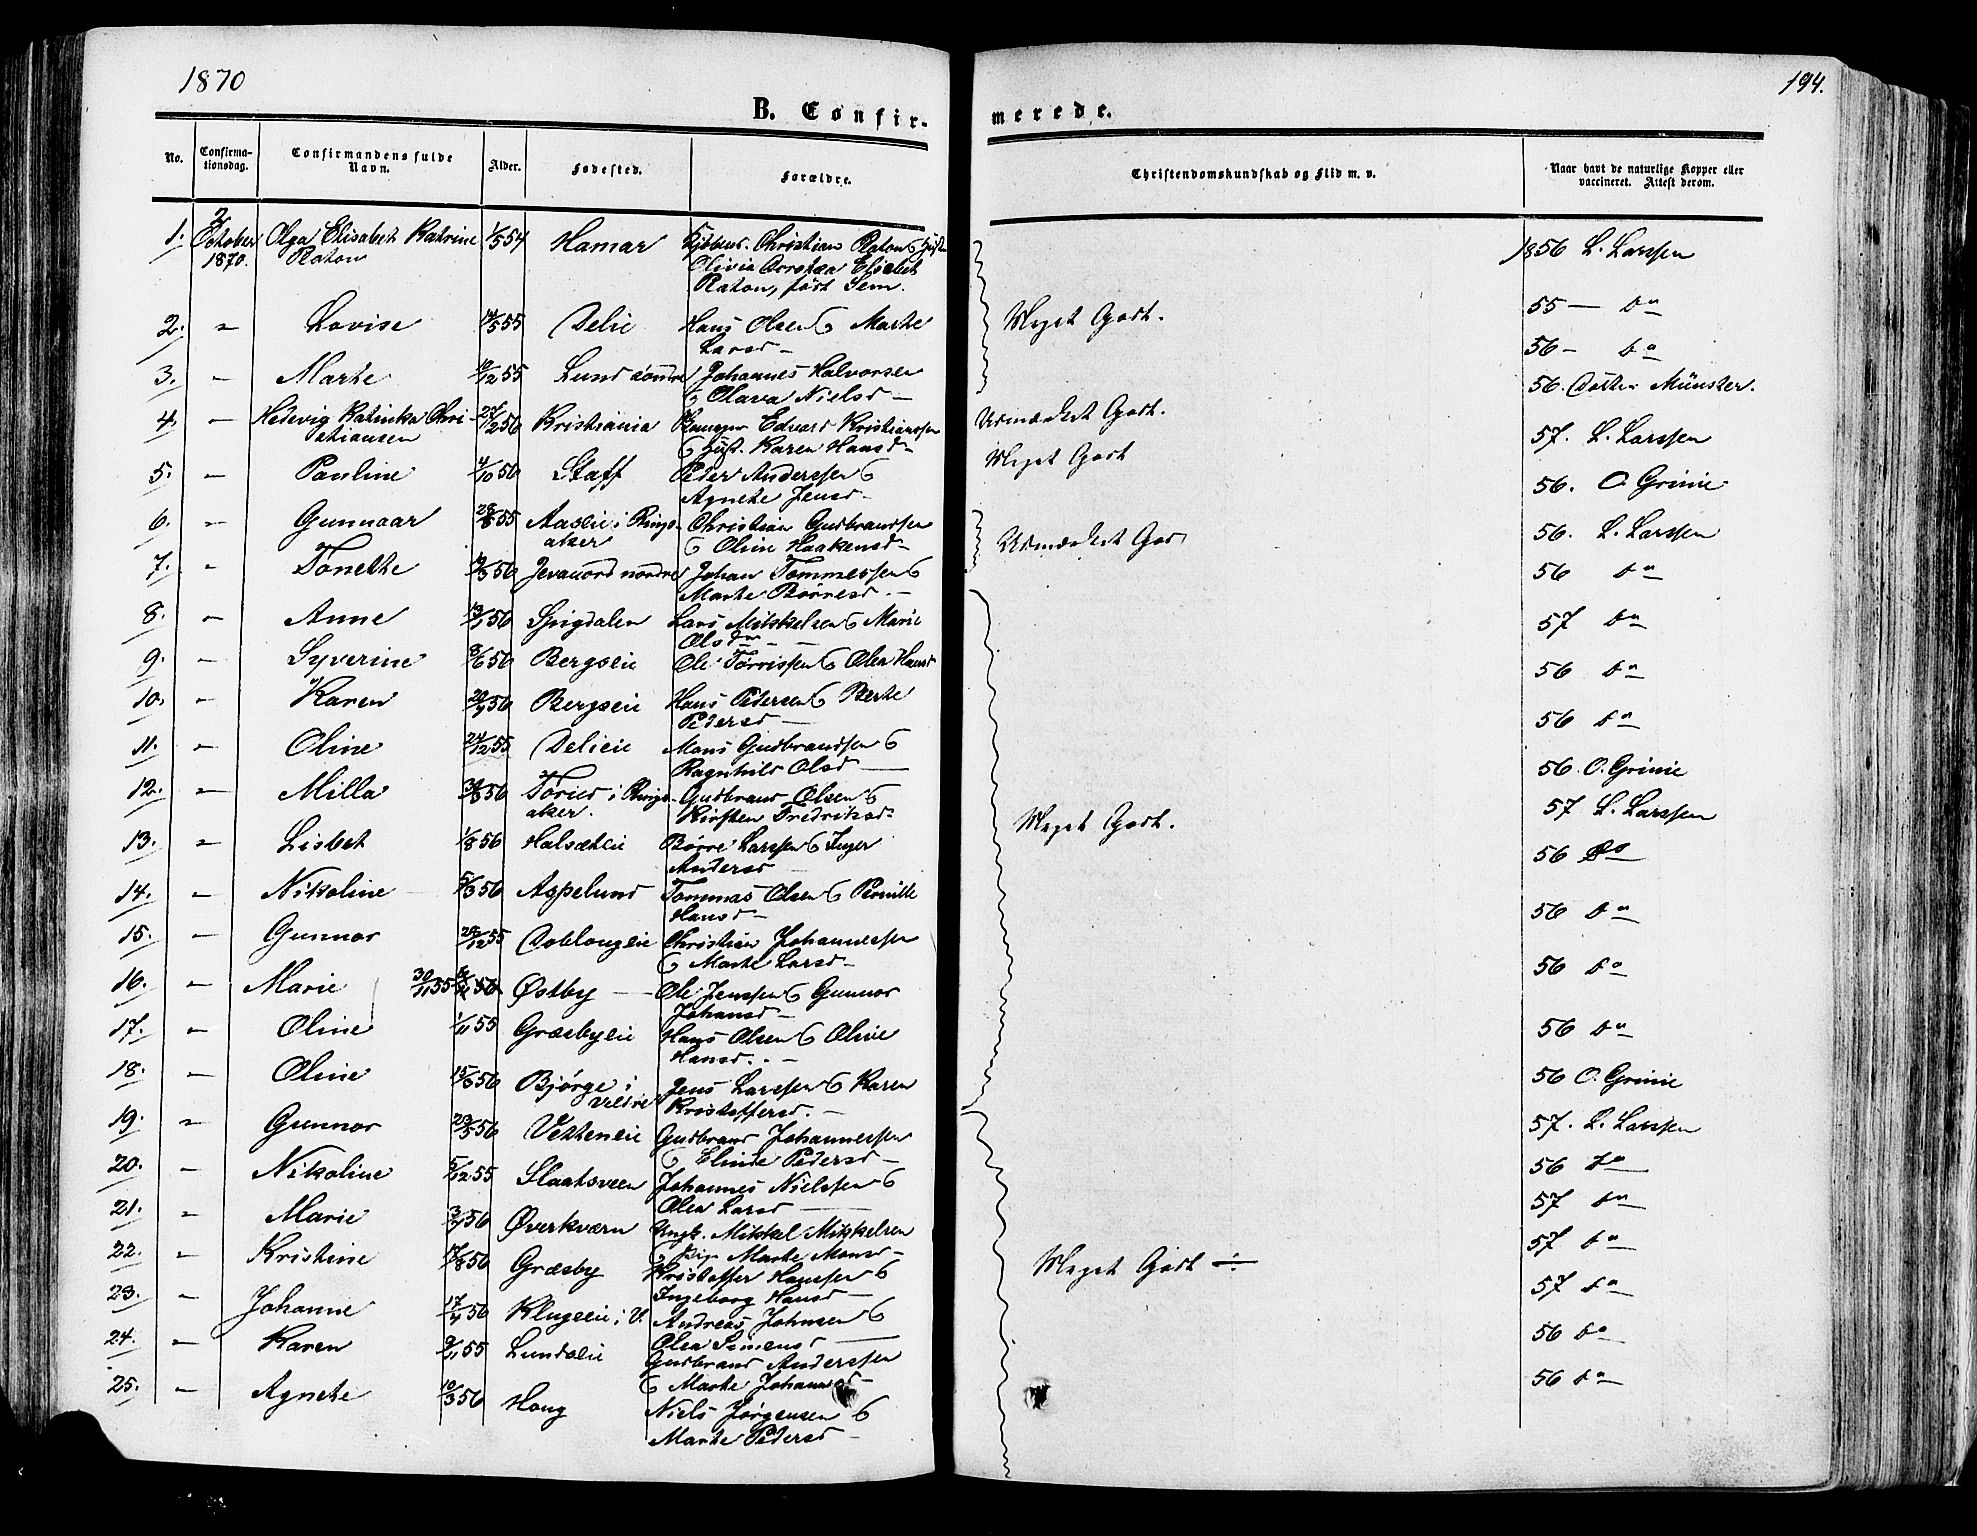 1870
194.
B. Confir-
merede.
No.
Confirma-
tionsdag.
Confirmandens fulde
Navn.
Alder.
Fødested.
Forældre.
Christendomskundskab og Flid m. v.
Naar havt de naturlige Kopper eller
vaccineret. Attest derom.
1. 2 October 1870. Olga Elisabet Katrine 1/5 54 Hamar Christian Raton
Raton Olivia Elisabet
Raton, født
1856 L. Larssen
2. " Lovise 14/5 55 Delie Hans Olsen & Marthe
Larsd
Meget Godt. 55 — do
3. " Marte 10/12 55 Lund søndre Johannes Halvorsen
& Olava Nielsd
56 - do
4. " Hedevig Katinka Chri- 56 Kristiania Edvard Kristiansen
stiansen & Hust. Karen Hansd
Udmærket Godt. 56. Münster.
5. " Pauline 4/10 56 Staff Peder Anderssen &
Agnete Jensd
Meget Godt 57. L. Larssen
6. " Gunnaar 55 Aaseie i Rings- Christian Gudbrandsen
aker & Oline Haakensd
56. O. Grinie
7. " Tonette 56 Jevanord nordre Johan Tommessen &
Marte Børresd
Udmærket God 56. L. Larssen
8. " Anne 56 Lars Mikkelsen & Marie
Olsdr
56 do
9. " Syverine 8/6 56 Bergseie Ole Tørrissen & Olea Hansd
57 do
10. " Karen 56 Bergseie Hans Pedersen & Berte
Pedersd
56 do
11. " Oline 24/12 55 Delieie Mons Gudbrandsen &
Ragnhild Olsd
56 do
12. " Milla 56 i Rings- Gudbrand Olsen &
aker. Kirsten Fredriksd
56. O. Grinie
13. " Lisbet 1/8 56 Halsæteie Børre Larssen & Inger
Andersd
Meget Godt. 57 L. Larssen
14. " Nikoline 5/3 56 Aspelund Tommas Olsen & Pernille
Hansd
56 do
15. " Gunnor 55 Doblougeie Christian Johannessen
& Marte Larsd
56 do
16. " Marie 30/11 55 Østby Ole Jenssen & Gunnor
Johansd
56 do
17. " Oline 1/11 55 Græsbyeie Hans Olsen & Oline
Hansd.
56 do
18. " Oline 15/3 56 Bjørge i Jens Larssen & Karen
Veldre Kristoffersd.
56 O. Grinie
19. " Gunnor 56 Vetteneie Gudbrand Johannessen
& Elinde Pedersd
57. L. Larssen
20. " Nikoline 5/12 55 Slaatsveen Johannes Nielssen &
Olea Larsd
56 do
21. " Marie 56 Øverkværn Ungk. Mikkel Mikkelsen
& Pige Marte Monsd
57 do
22. " Kristine 17/8 56 Græsby Kristoffer Hanssen &
Ingeborg Hansd
Meget Godt ÷ 57 do
23. " Johanne 17/4 56 Klugeeie i V. Andreas Johnsen &
Olea Simensd
57 do
24. " Karen 9/11 55 Lundeie Gudbrand Anderssen
& Marte Johannesd
56 do
25. " Agnete 10/3 56 Houg Niels Jørgensen &
Marte Pedersd
56 do